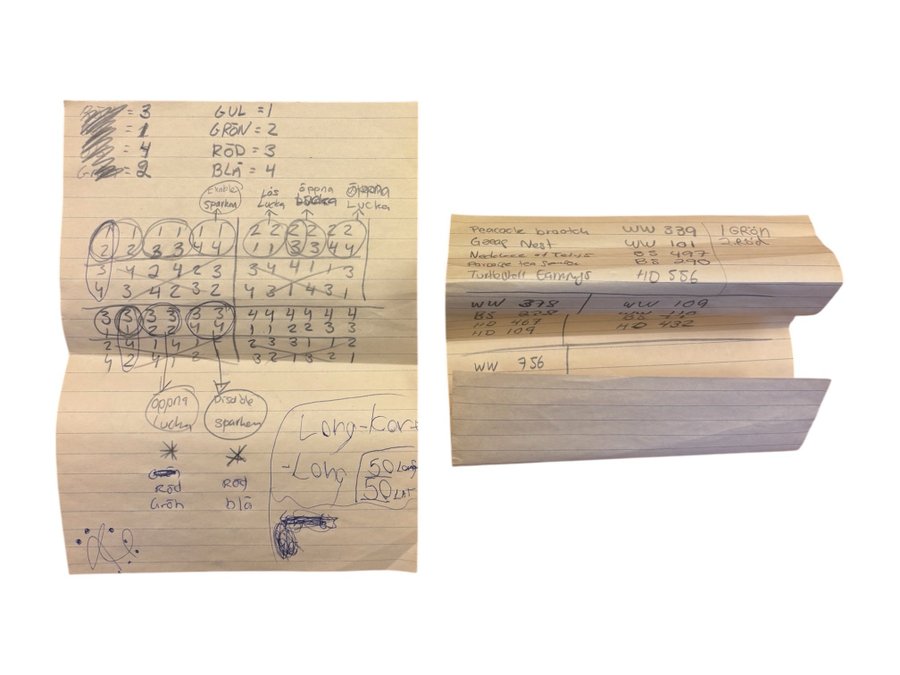 = 3 GUL = 1
= 1 GRÖN = 2
= 4 RÖD = 3
= 2 BLÅ = 4
Enable Lås öppna öppna
Sparken Lucka Lucka
1 1 1 1 1 1 2 2 2 2 2 2
2 2 3 3 4 4 1 1 3 3 4 4
3 4 2 4 2 3 3 4 1 1 3
4 3 4 2 3 2 4 3 4 3 1
3 3 3 3 3 3 4 4 4 4 4 4
1 1 2 2 4 4 1 1 2 2 3 3
2 4 1 4 2 3 3 1 1 2
4 2 4 1 2 3 2 1 3 2 1
öppna Disable
Lucka Sparken
Röd röd
Grön blå
Long-Kor
-Long 50 Long
50 LAT
Peacock brooch WW 339 1 Grön
Nest WW 101 2 röd
Necklace of BS 497
BS 290
HD 556
WW 378 WW 109
BS 228 BS 110
HD 467 HD 432
HD 109
WW 756